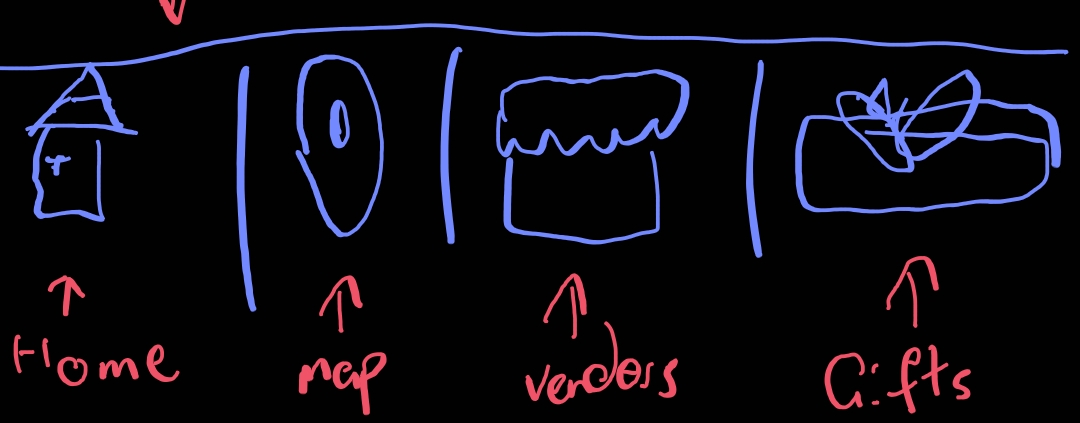 Home map vendors Gifts